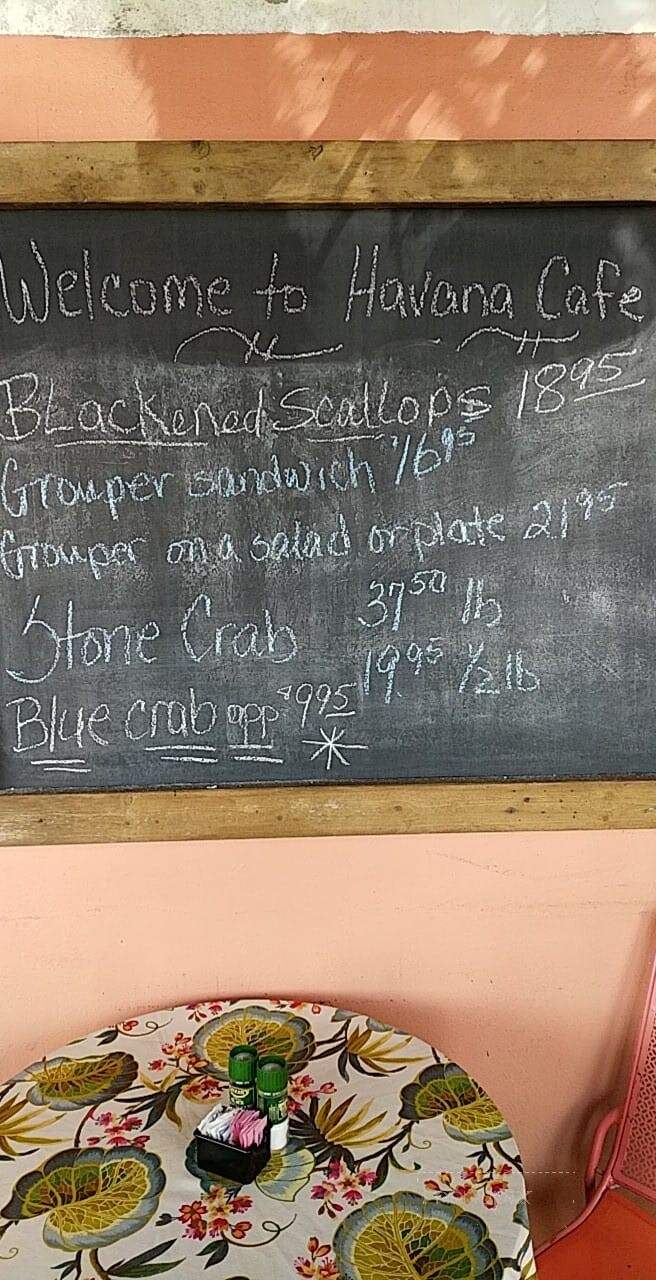 Welcome to Havana Cafe
BLackened Scallops 18 95
Grouper sandwich 16 95
Grouper on a salad or plate 21 95
Stone Crab 37 50 lb
19 95 1/2 lb
Blue crab app $9 95